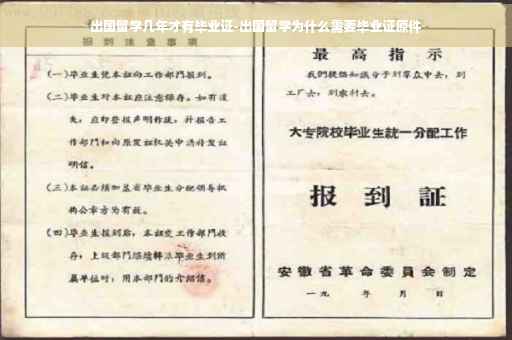 出国留学几年才有毕业证-出国留学为什么需要毕业证原件
报到注意事项
(一)毕业生凭本证向工作部门报到。
(二)毕业生对本证应注意保存。如有遗
失，应即登报声明作废，并报告工
作部门和向原发证机关申请补发证
明信。
(三)本证必须加盖省毕业生分配领导机
构公章方为有效。
(四)毕业生报到后，本证交工作部门收
存；上级部门
毕业生到所
属单位时，用本部门的介绍信。
最高指示
我们提倡知识分子到群众中去，到
工厂去，到农村去。
大专院校毕业生統一分配工作
报到証
安徽省革命委員会制定
一九 年 月 日